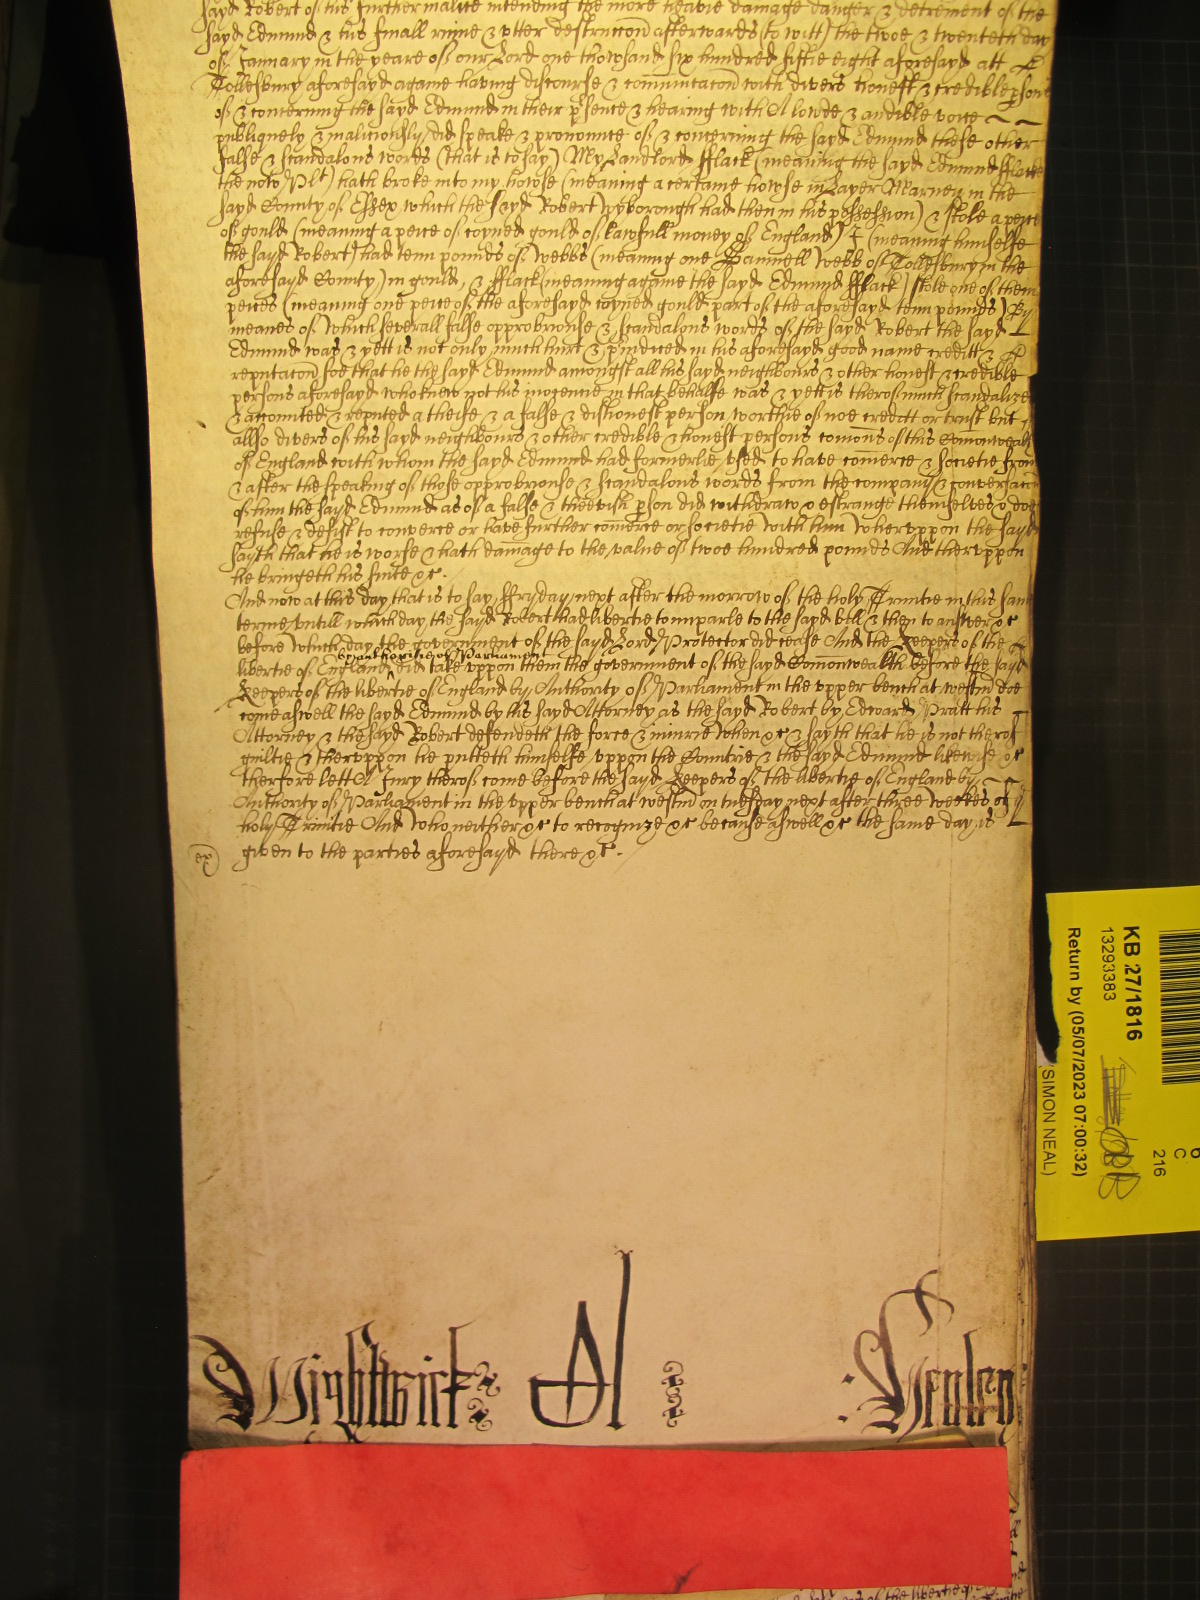 sayd Robert of his further malice intending the more heavie damage danger & detrement of the
sayd Edmund & his finall ruine & utter destruccon afterwards (to witt) the twoe & twentieth day
of January in the yeare of our Lord one thowsand six hundred fiftie eight aforesayd att
Tollesbury aforesayd againe having discourse & communicacon with divers honest & credible psons
of & concerning the sayd Edmund in their psence & hearing with A lowde & audible voice
publiquely & maliciously did speake & pronounce of & concerning the sayd Edmund these other
false & scandalous words (that is to say) My Landlord fflack (meaning the sayd Edmund fflacke
the now Plt) hath broke into my howse (meaning a certaine howse in Layer Marney in the
sayd County of Essex which the sayd Robert Wyborough had then in his possession) & stole a peice
of gould (meaning a peice of coyned gould of lawfull money of England) I (meaning himselfe
the sayd Robert) had tenn pounds of Webbs (meaning one Samuell Webb of Tollesbury in the
aforesayd County) in gould & fflack (meaning againe the sayd Edmund fflack) stole one of them
peices (meaning one peice of the aforesayd coyned gould part of the aforesayd tenn pounds) By
meanes of which severall false opprobriouse & scandalous words of the sayd Robert the sayd
Edmund was & yett is not only much hurt & piudiced in his aforesayd good name creditt &
reputacon soe that he the sayd Edmund amongst all his sayd neighbours & other honest & credible
persons aforesayd who knew not his inocencie in that behalfe was & yett is therof much scandalized
& accounted & reputed a theife & a false & dishonest person worthie of noe creditt or trust but
allso divers of his sayd neighbours & other credible & honest persons comons of this Comonwealth
of England with whom the sayd Edmund had formerlie used to have comerce & societie from
& after the speaking of those opprobriouse & scandalous words from the company & conversacon
of him the sayd Edmund as of a false & theevish pson did withdraw & estrange themselves & doe
refuse & desist to converce or have further comerce or societie with him Wheruppon the sayd
sayth that he is worse & hath damage to the value of twoe hundred pounds And theruppon
he bringeth his suite &c.
And now at this day that is to say ffryday next after the morrow of the holy Trinitie in this same
terme untill which day the sayd Robert had libertie to imparle to the sayd bill & then to answer &c
before which day the government of the sayd Lord Protector did cease And the Keepers of the
by authoritie of Parliament
libertie of England did take uppon them the government of the sayd Comonwealth before the sayd
Keepers of the libertie of England by Authority of Parliament in the upper bench at westm doe
come aswell the sayd Edmund by his sayd Attorney as the sayd Robert by Edward Pratt his
Attorney & the sayd Robert defendeth the force & iniurie when &c & sayth that he is not therof
guiltie & theruppon he putteth himselfe uppon the Countrie & the sayd Edmund likewise &c
therfore lett A Jury therof come before the sayd Keepers of the libertie of England by
Authority of Parliament in the upper bench at westm on tuesday next after three weekes of
holy Trinitie And who neither &c to recognize &c because aswell &c the same day is
given to the parties aforesayd there &c.
ex
Wightwick
Al
KB 27/1816
13293383
Return by (05/07/2023 07:00:32)
(SIMON NEAL)
6
C
216